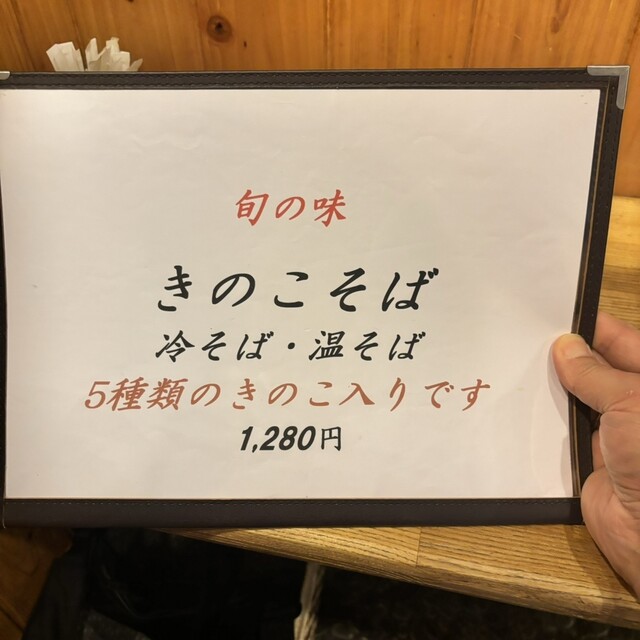 旬の味
きのこそば
冷そば・温そば
5種類のきのこ入りです
1,280円